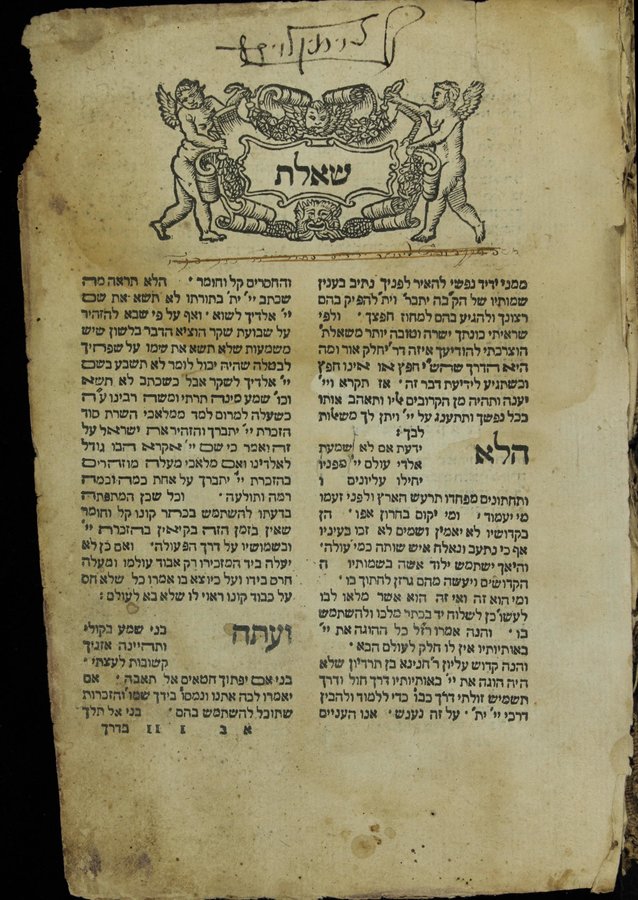 שאלת
ממני ידיד נפשי להאיר לפניך נתיב בענין
שמותיו של הקב״ה יתבר׳ וית׳ להפיק בהם
רצונך ולהגיע בהם למחוז חפצך ׳ ולפי
שראיתי כונתך ישרה וטובה יותר משאלת׳
הוצרכתי להודיעך איזה דר׳ יחלק אור ומה
היא הדרך שהש״י חפץ או אינו חפץ
וכשתגיע לידיעת דבר זה ׳ אז תקרא וי״י
יענה ותהיה מן הקרובים אליו ותאהב אותו
בכל נפשך ותתענג על י״י ויתן לך משאלות
לבך :
הלא
ידעת אם לא שמעת
אלדי עולם י״י מפניו
יחילו עליונים ו
ותחתונים מפחדו תרעש הארץ ולפני זעמו
מי יעמוד ׳ ומי יקום בחרון אפו ׳ הן
בקדושיו לא יאמין ושמים לא זכו בעיניו
אף כי נתעב ונאלח איש שותה כמי עולה׳
והיאך ישתמש ילוד אשה בשמותיו ה
הקדושים ויעשה מהם גרזן לחתוך בו ׳
ומי הוא זה ואי זה הוא אשר מלאו לבו
לעשו׳ כן לשלוח יד בכתר מלכו ולהשתמש
בו ׳ והנה אמרו רז״ל כל ההוגה את י״י
באותיותיו אין לו חלק לעולם הבא ׳
והנה קדוש עליון ר׳ חנינא בן תרדיון שלא
היה הוגה את י״י באותיותיו דרך חול ודרך
תשמיש זולתי דרך כבו׳ כדי ללמוד ולהבין
דרכי י״י ית׳ ׳ על זה נענש ׳ אנו העניים
והחסרים קל וחומר ׳ הלא תראה מה
שכתב י״י ית׳ בתורתו לא תשא את שם
י״י אלדיך לשוא ׳ ואף על פי שבא להזהיר
על שבועת שקר הוציא הדבר בלשון שיש
משמעות שלא תשא את שימו על שפתיך
לבטלה שהיה יכול לומר לא תשבע בשם
י״י אלדיך לשקר אבל כשכתב לא תשא
וכו׳ שמע מינה תרתי ומשה רבינו ע״ה
כשעלה למרום למד ממלאכי השרת סוד
הזכרת י״י יתברך והזהיר את ישראל על
זה ואמר כי שם י״י אקרא הבו גודל
לאלדינו ואם מלאכי מעלה מוזהרים
בהזכרת י״י יתברך על אחת כמה וכמה
רמה ותולעה ׳ וכל שכן המתפתה
בדעתו להשתמש בכתר קונו קל וחומר
שאין בזמן הזה בקיאין בהזכרת י״י
ובשמושיו על דרך הפעולה ׳ ואם כן לא
יעלה ביד המזכירו רק אבוד עולמו ומעלה
חרס בידו ועל כיוצא בו אמרו כל שלא חס
על כבוד קונו ראוי לו שלא בא לעולם :
ועתה
בני שמע בקולי
ותהיינה אזניך
קשובות לעצתי ׳
בני אם יפתוך חטאים אל תאבה ׳ אם
יאמרו לכה אתנו ונמסו׳ בידך שמו׳ והזכרות
שתוכל להשתמש בהם ׳ בני אל תלך
א ב ו וו בדרך